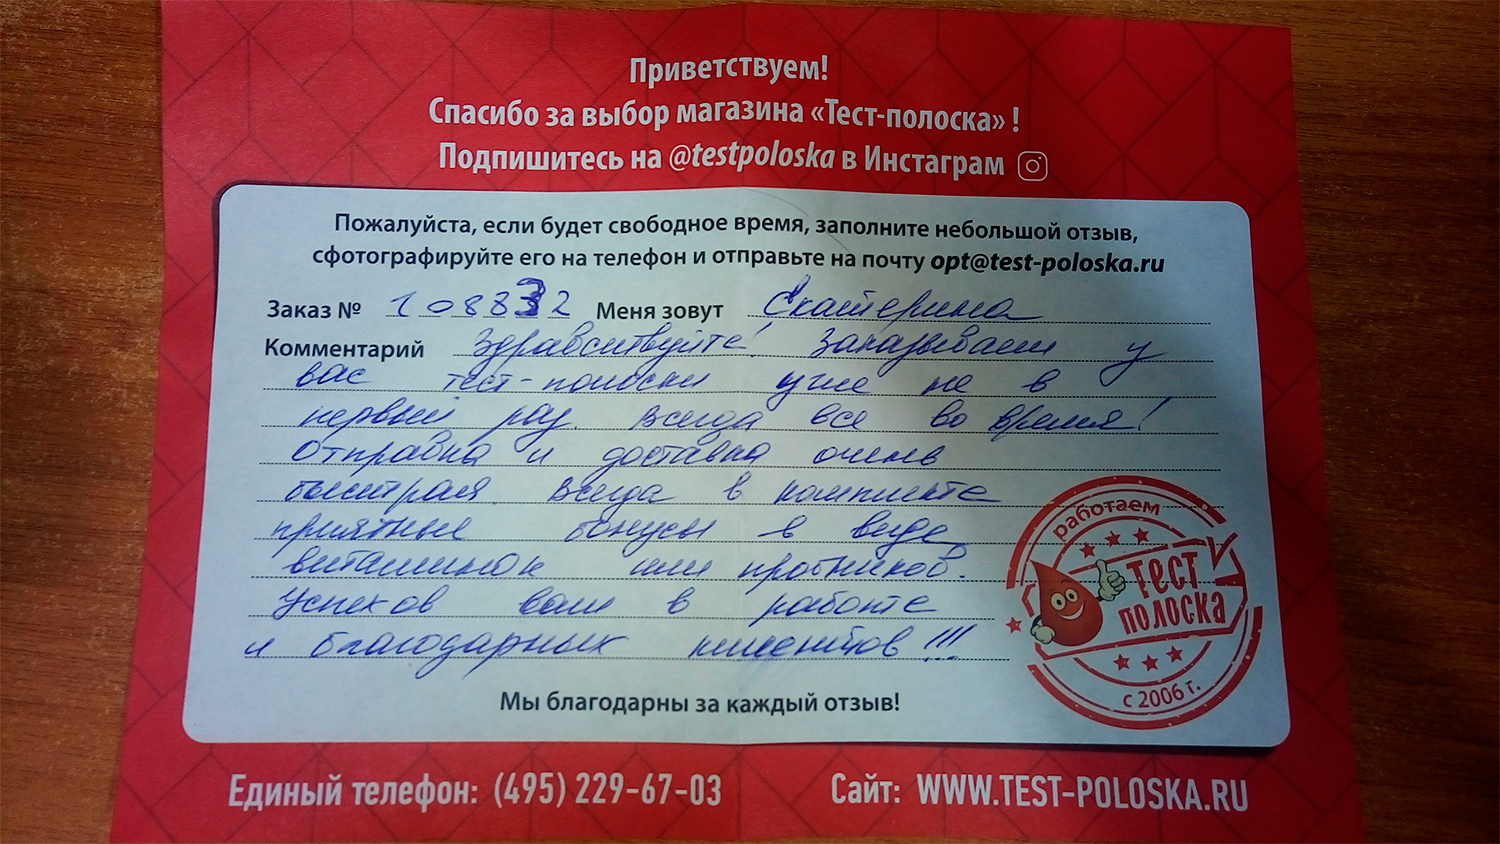 Приветствуем!
Спасибо за выбор магазина «Тест-полоска» !
Подпишитесь на @testpoloska в Инстаграм
Пожалуйста, если будет свободное время, заполните небольшой отзыв,
сфотографируйте его на телефон и отправьте на почту opt@test-poloska.ru
Заказ № 108832 Меня зовут Екатерина
Комментарий Здравствуйте! Заказываем у
вас тест-полоски уже не в
первый раз. Всегда все во время!
Отправка и доставка очень
быстрая. Всегда в комплекте
приятные бонусы в виде
витаминок или пробников.
Успехов вам в работе
и благодарных клиентов!!!
работаем
ТЕСТ
ПОЛОСКА
с 2006 г.
Мы благодарны за каждый отзыв!
Единый телефон: (495) 229-67-03 Сайт: WWW.TEST-POLOSKA.RU